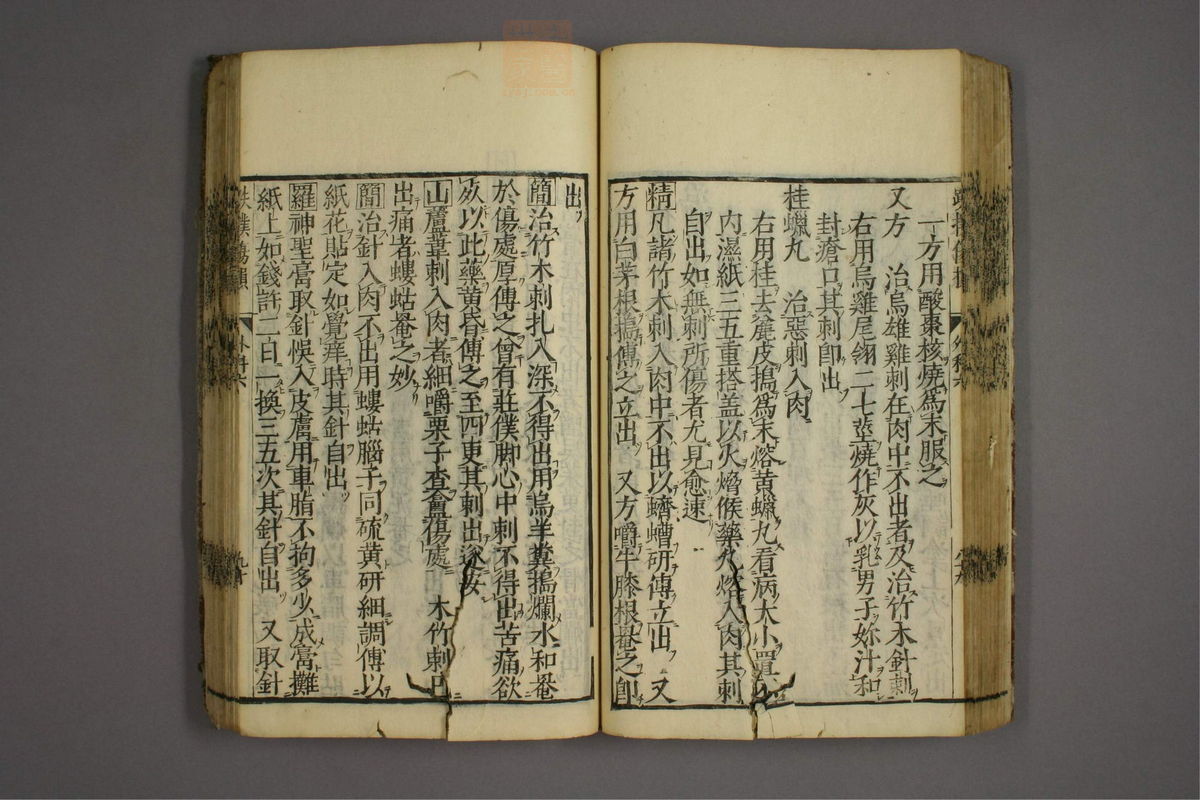 一方用酸棗核燒爲末服之
又方　治烏雄雞刺在肉中不出者及治竹木針刺
右用烏雞尾翎二七莖燒作灰以乳男子妳汁和
封瘡口其刺即出
桂蠟丸　治惡刺入肉
右用桂去麄皮搗爲末熔黃蠟丸看病大小置
内濕紙三五重搭盖以火熁候藥丸熔入肉其刺
自出如無刺所傷者尤見愈速
精凡諸竹木刺入肉中不出以蠐螬研傅立出　又
方用白茅根搗傅之立出　又方嚼牛膝根罨之即
出
簡治竹木刺扎入深不得出用烏羊糞搗爛水和罨
於傷處厚傅之曾有莊僕脚心中刺不得出苦痛欲
以此藥黃昏傅之至四更其刺出遂安
山蘆葦刺入肉者細嚼栗子查盫傷處　木竹刺已
出痛者螻蛄罨之妙
簡治針入肉不出用螻蛄腦子同硫黃研細調傅以
紙花貼定如覺痒時其針自出
羅神聖膏取針悞入皮膚用車脂不拘多少成膏攤
紙上如錢許二日一換三五次其針自出　又取針
外科六
九十